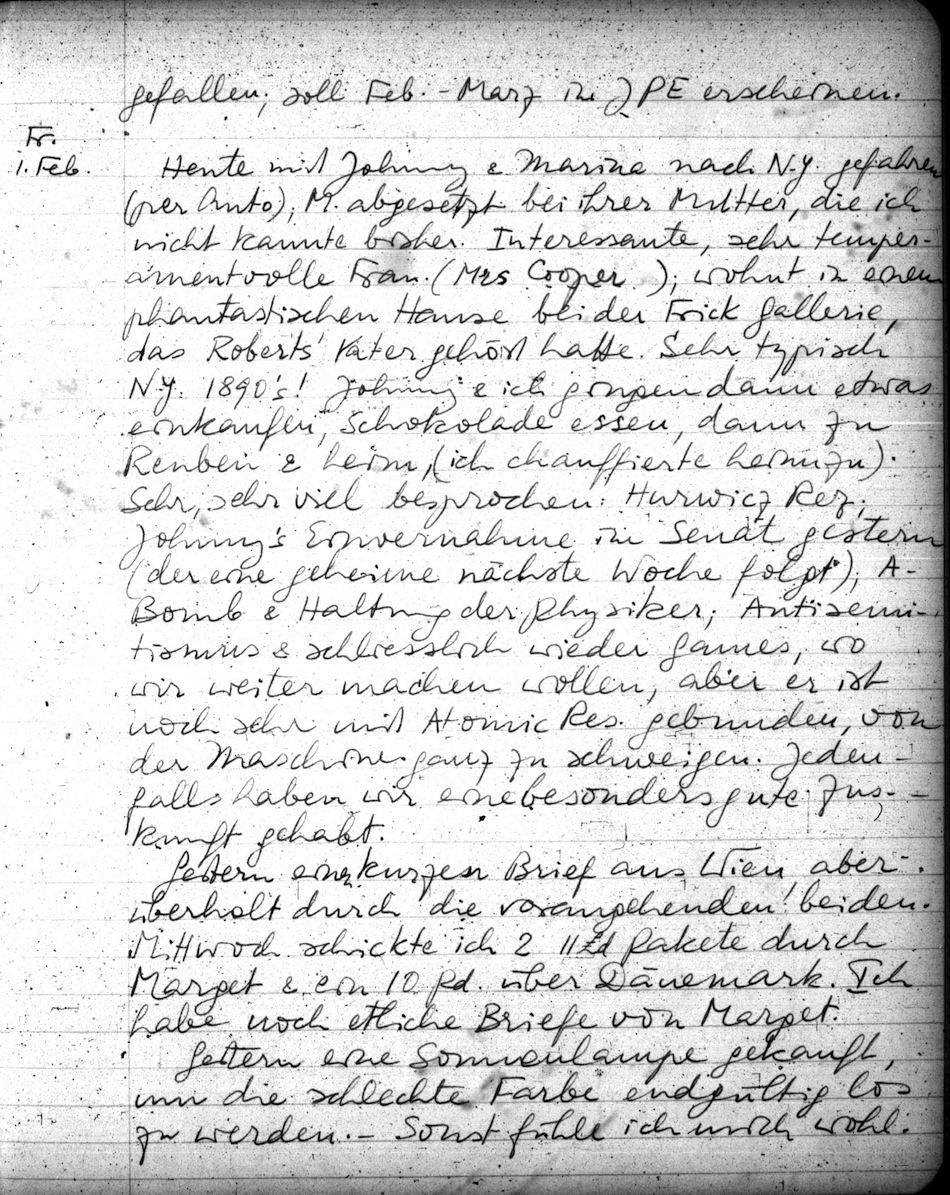 gefallen; soll Feb. - März in JPE erscheinen.
Fr.
1. Feb. Heute mit Johnny & Marina nach N.Y. gefahren
(per Auto); M. abgesetzt bei ihrer Mutter, die ich
nicht kannte bisher. Interessante, sehr temper-
amentvolle Frau. (Mrs Cooper ); wohnt in einem
phantastischen Hause bei der Frick Gallerie,
das Roberts' Vater gehört hatte. Sehr typisch
N.Y. 1890's! Johnny & ich gingen dann etwas
einkaufen, Schokolade essen, dann zu
Reuben & heim, (ich chauffierte heimzu).
Sehr, sehr viel besprochen: Hurwicz Rez.;
Johnny's Einvernahme im Senat gestern
(der eine geheime nächste Woche folgt); A-
Bomb & Haltung der Physiker; Antisemi-
tismus & schliesslich wieder games, wo
wir weiter machen wollen, aber er ist
noch sehr mit Atomic Res. gebunden, von
der Maschine ganz zu schweigen. Jeden-
falls haben wir eine besonders gute Zus.-
kunft gehabt.
Gestern einen kurzen Brief aus Wien, aber
überholt durch die vorangehenden beiden.
Mittwoch schickte ich 2 11 Pakete durch
Marget & ein 10 Pd. über Dänemark. Ich
habe noch etliche Briefe von Marget.
Gestern eine Sonnenlampe gekauft,
um die schlechte Farbe endgültig los
zu werden. - Sonst fühle ich mich wohl.